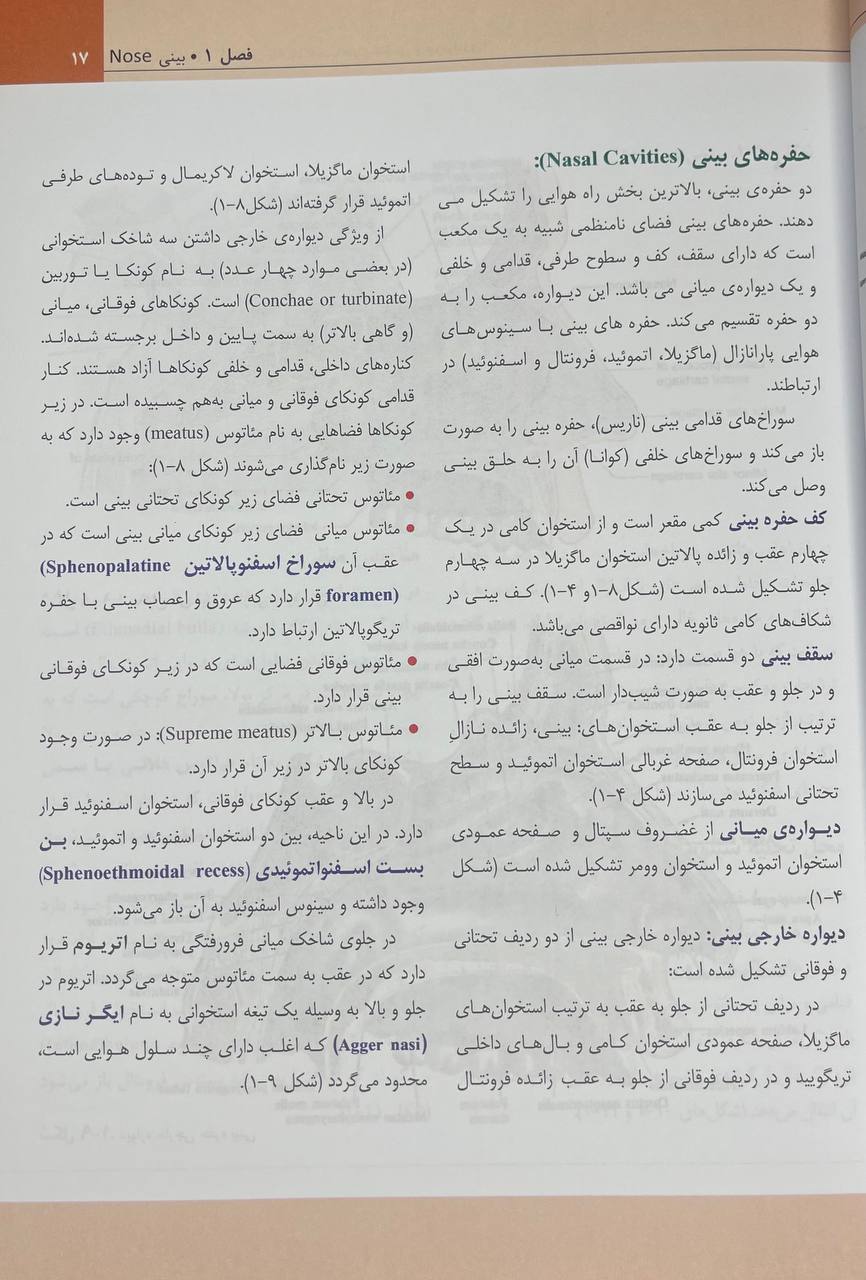 فصل ۱ • بینی Nose ۱۷
حفره‌های بینی (Nasal Cavities):
دو حفره‌ی بینی، بالاترین بخش راه هوایی را تشکیل می
دهند. حفره‌های بینی فضای نامنظمی شبیه به یک مکعب
است که دارای سقف، کف و سطوح طرفی، قدامی و خلفی
و یک دیواره‌ی میانی می باشد. این دیواره، مکعب را به
دو حفره تقسیم می‌کند. حفره های بینی با سینوس‌های
هوایی پارانازال (ماگزیلا، اتموئید، فرونتال و اسفنوئید) در
ارتباطند.
سوراخ‌های قدامی بینی (ناریس)، حفره بینی را به صورت
باز می‌کند و سوراخ‌های خلفی (کوانا) آن را به حلق بینی
وصل می‌کند.
کف حفره بینی کمی مقعر است و از استخوان کامی در یک
چهارم عقب و زائده پالاتین استخوان ماگزیلا در سه چهارم
جلو تشکیل شده است (شکل۸-۱و ۴-۱). کف بینی در
شکاف‌های کامی ثانویه دارای نواقصی می‌باشد.
سقف بینی دو قسمت دارد: در قسمت میانی به‌صورت افقی
و در جلو و عقب به صورت شیب‌دار است. سقف بینی را به
ترتیب از جلو به عقب استخوان‌های: بینی، زائده نازالِ
استخوان فرونتال، صفحه غربالی استخوان اتموئید و سطح
تحتانی اسفنوئید می‌سازند (شکل ۴-۱).
دیواره‌ی میانی از غضروف سپتال و صفحه عمودی
استخوان اتموئید و استخوان وومر تشکیل شده است (شکل
۴-۱).
دیواره خارجی بینی: دیواره خارجی بینی از دو ردیف تحتانی
و فوقانی تشکیل شده است:
در ردیف تحتانی از جلو به عقب به ترتیب استخوان‌های
ماگزیلا، صفحه عمودی استخوان کامی و بال‌های داخلی
تریگویید و در ردیف فوقانی از جلو به عقب زائده فرونتال
استخوان ماگزیلا، استخوان لاکریمال و توده‌های طرفی
اتموئید قرار گرفته‌اند (شکل۸-۱).
از ویژگی دیواره‌ی خارجی داشتن سه شاخک استخوانی
(در بعضی موارد چهار عدد) به نام کونکا یا توربین
(Conchae or turbinate) است. کونکاهای فوقانی، میانی
(و گاهی بالاتر) به سمت پایین و داخل برجسته شده‌اند.
کناره‌های داخلی، قدامی و خلفی کونکاها آزاد هستند. کنار
قدامی کونکای فوقانی و میانی به‌هم چسبیده است. در زیر
کونکاها فضاهایی به نام مئاتوس (meatus) وجود دارد که به
صورت زیر نام‌گذاری می‌شوند (شکل ۸-۱):
• مئاتوس تحتانی فضای زیر کونکای تحتانی بینی است.
• مئاتوس میانی فضای زیر کونکای میانی بینی است که در
عقب آن سوراخ اسفنوپالاتین (Sphenopalatine
foramen) قرار دارد که عروق و اعصاب بینی با حفره
تریگوپالاتین ارتباط دارد.
• مئاتوس فوقانی فضایی است که در زیر کونکای فوقانی
بینی قرار دارد.
• مئاتوس بالاتر (Supreme meatus): در صورت وجود
کونکای بالاتر در زیر آن قرار دارد.
در بالا و عقب کونکای فوقانی، استخوان اسفنوئید قرار
دارد. در این ناحیه، بین دو استخوان اسفنوئید و اتموئید، بن
بست اسفنواتموئیدی (Sphenoethmoidal recess)
وجود داشته و سینوس اسفنوئید به آن باز می‌شود.
در جلوی شاخک میانی فرورفتگی به نام اتریوم قرار
دارد که در عقب به سمت مئاتوس متوجه می‌گردد. اتریوم در
جلو و بالا به وسیله یک تیغه استخوانی به نام ایگر نازی
(Agger nasi) که اغلب دارای چند سلول هوایی است،
محدود می‌گردد (شکل ۹-۱).